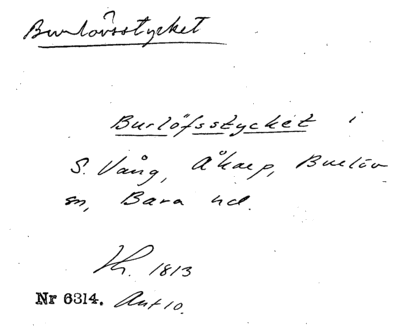 Burlövsstycket
Burlöfsstycket i
S. Vång, Åkarp, Burlöv
sn, Bara hd.
Kh. 1813
Nr 6314. Akt 10.